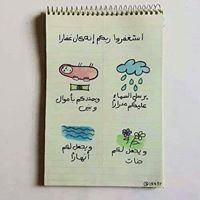 استغفروا ربكم إنه كان غفارا
يرسل السماء
عليكم مدرارا
ويمددكم بأموال
وبنين
ويجعل لكم
جنات
ويجعل لكم
أنهارا